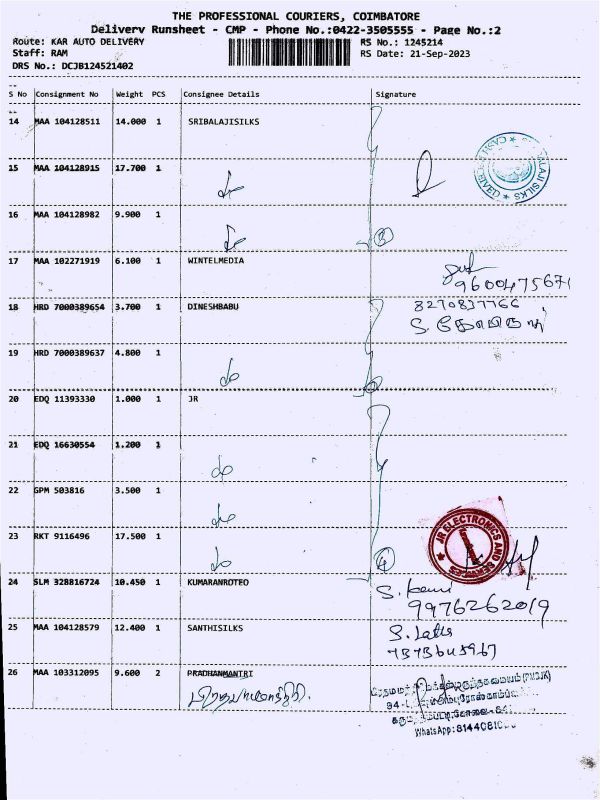 THE PROFESSIONAL COURIERS, COIMBATORE
Delivery Runsheet - CMP - Phone No.:0422-3505555 - Page No.:2
Route: KAR AUTO DELIVERY
RS No.: 1245214
Staff: RAM
RS Date: 21-Sep-2023
DRS No.: DCJB124521402
S No Consignment No Weight PCS Consignee Details Signature
14 MAA 104128511 14.000 1 SRIBALAJISILKS
15 MAA 104128915 17.700 1
16 MAA 104128982 9.900 1
3
17 MAA 102271919 6.100 1 WINTELMEDIA
9600475671
18 HRD 7000389654 3.700 1 DINESHBABU
8270837766
19 HRD 7000389637 4.800 1
20 EDQ 11393330 1.000 1 JR
21 EDQ 16630554 1.200 1
22 GPM 503816 3.500 1
23 RKT 9116496 17.500 1
4
JR ELECTRONICS AND
24 SLM 328816724 10.450 1 KUMARANROTEO
9976262019
25 MAA 104128579 12.400 1 SANTHISILKS
26 MAA 103312095 9.600 2 PRADHANMANTRI
WhatsApp: